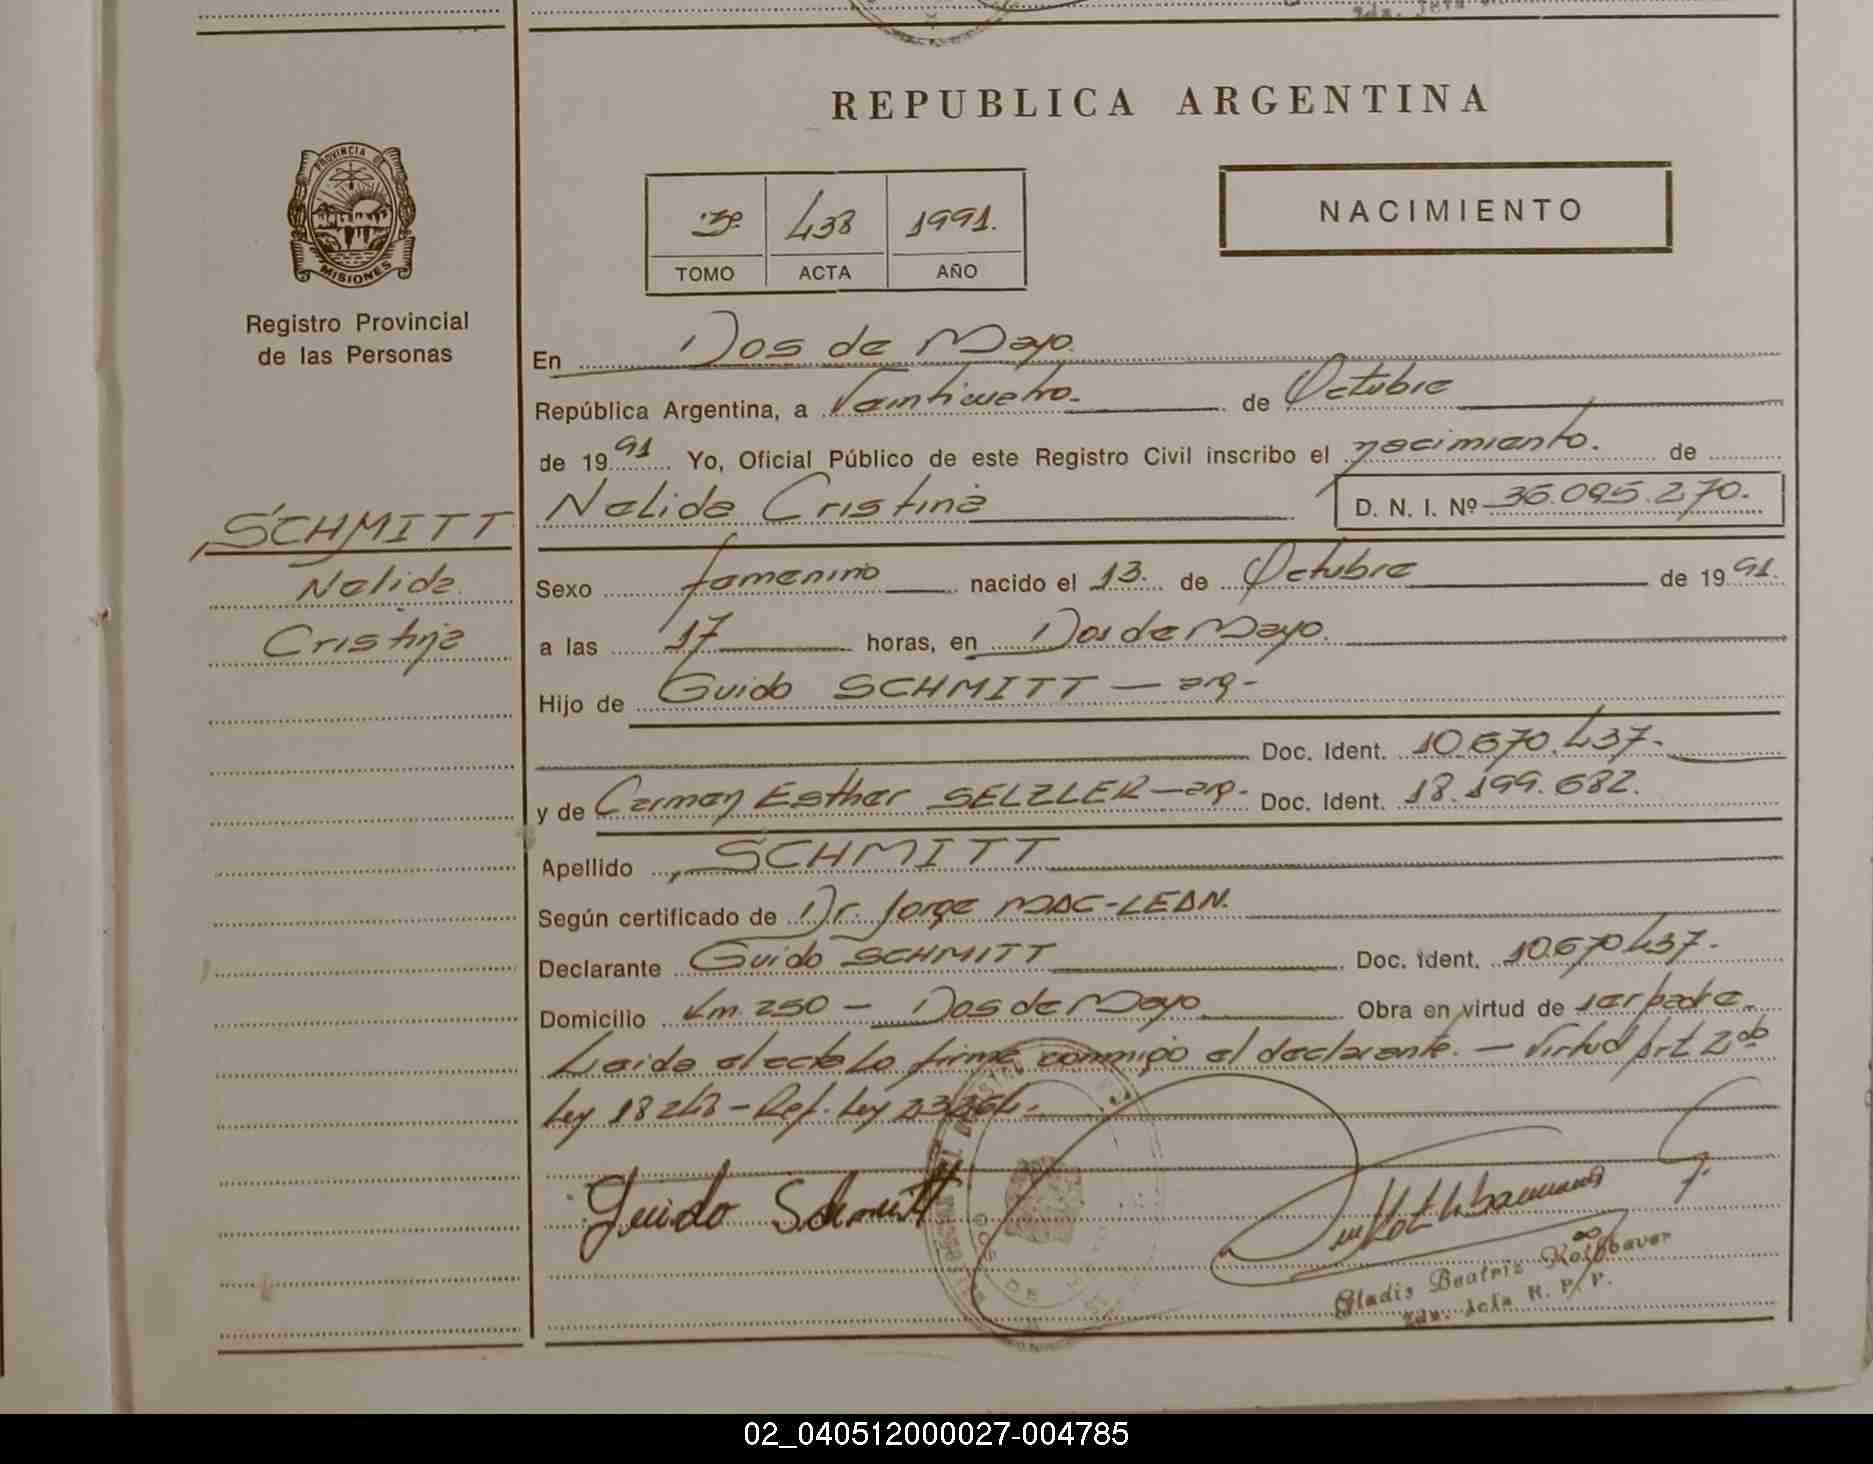 REPUBLICA ARGENTINA
PROVINCIA DE
MISIONES
Registro Provincial
de las Personas
3º 438 1991.
TOMO ACTA AÑO
NACIMIENTO
En Dos de Mayo.
República Argentina, a Veinticuatro.- de Octubre
de 1991 Yo, Oficial Público de este Registro Civil inscribo el nacimiento. de
Nelida Cristina D. N. I. Nº 36.095.270.-
SCHMITT
Nelida
Cristina
Sexo femenino nacido el 13. de Octubre de 1991.
a las 17 horas, en Dos de Mayo.
Hijo de Guido SCHMITT - arg-
Doc. Ident. 10.670.437.-
y de Carmen Esther SELZLER - arg- Doc. Ident. 18.199.682.
Apellido SCHMITT
Según certificado de Dr. Jorge MAC-LEAN.
Declarante Guido SCHMITT Doc. ident. 10.670.437.-
Domicilio Km. 250 - Dos de Mayo Obra en virtud de ser padre.-
Leida el acta la firma conmigo el declarante. - Virtud Art 2do
Ley 18248 - Ref. Ley 23264.-
Guido Schmitt
DOS DE
Gladis Beatriz Rothbauer
2da. Jefa R. P. P.
02_040512000027-004785